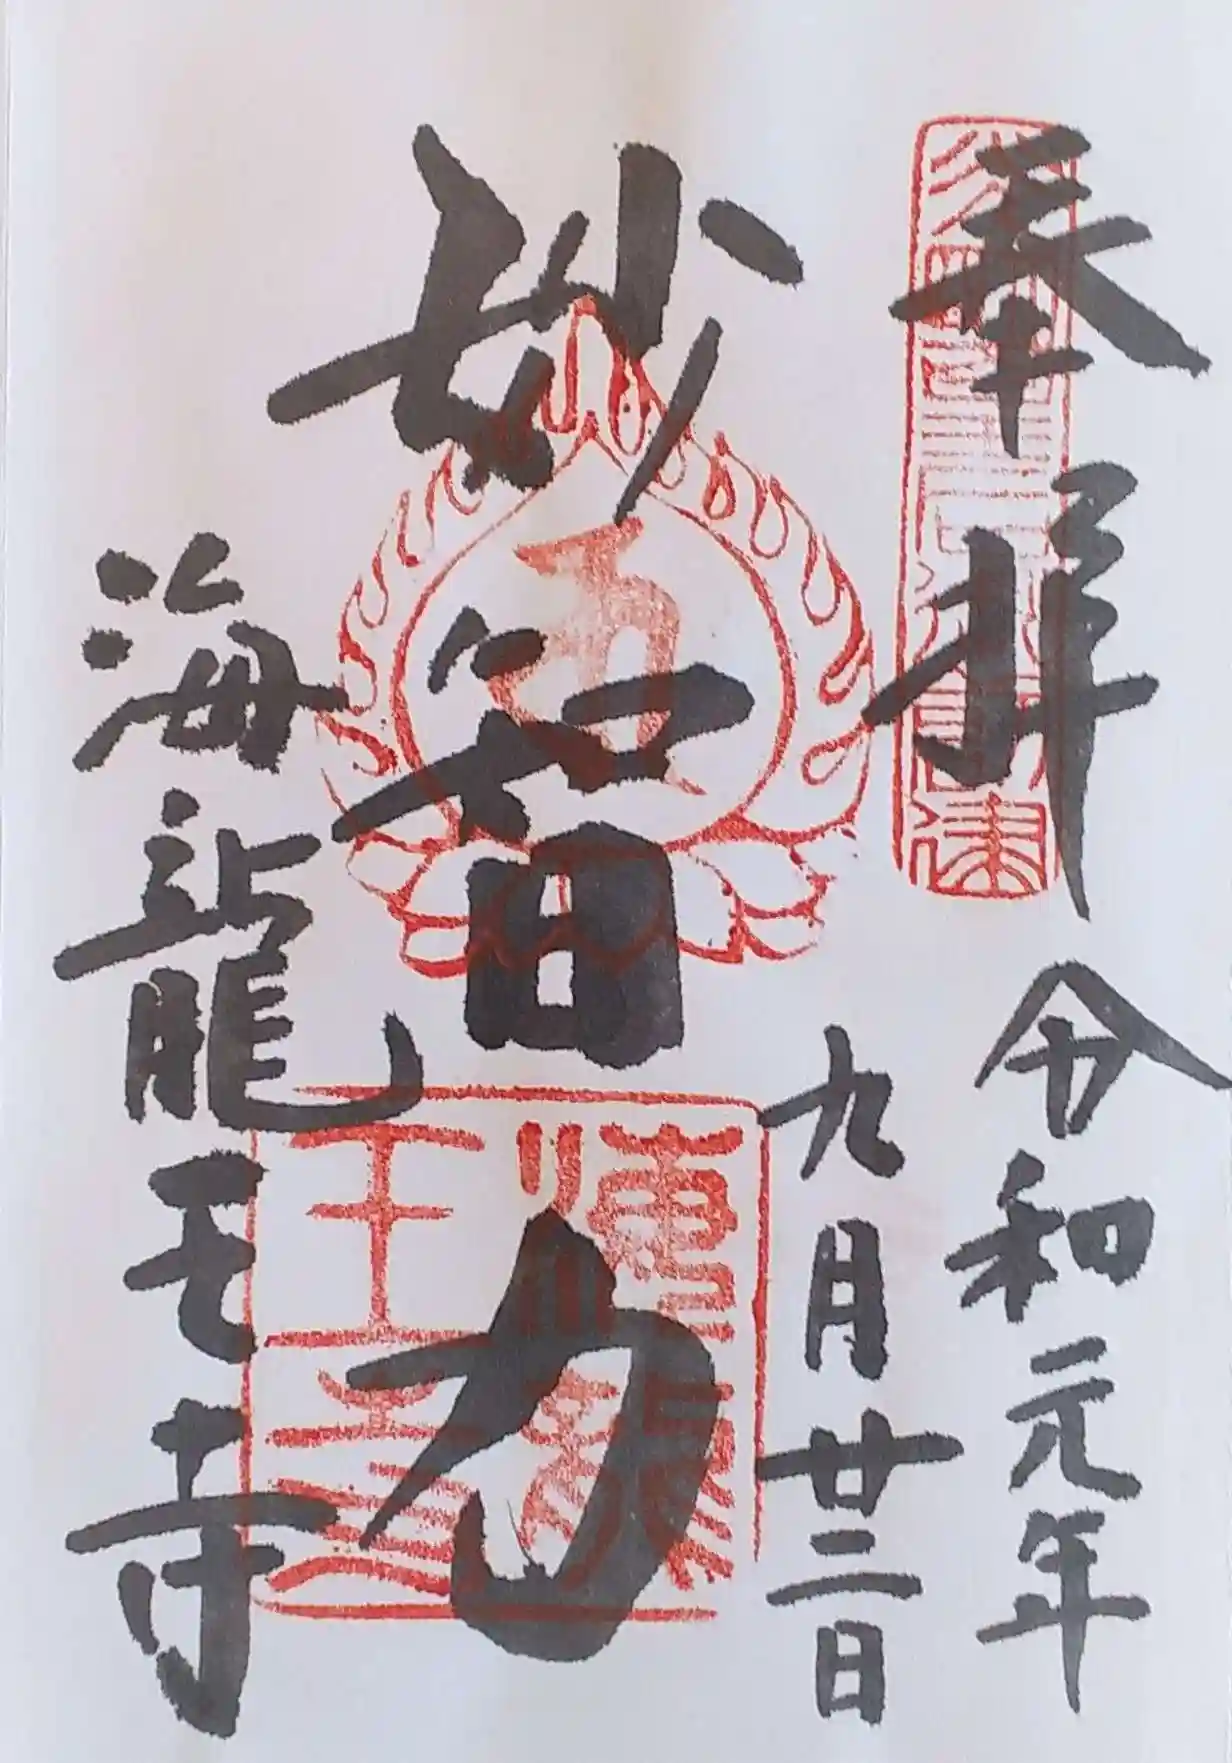 奉拝
令和元年
九月廿三日
妙智力
海龍王寺